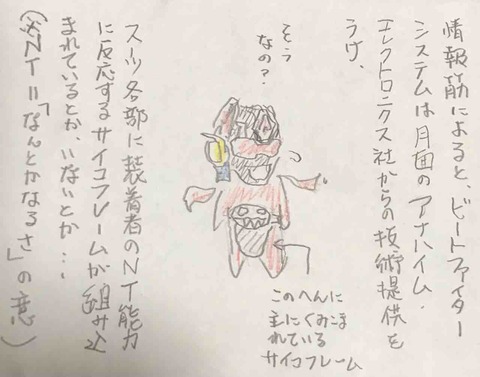 情報筋によると、ビートファイター
システムは月面のアナハイム・
エレクトロニクス社からの技術提供を
うけ、
そう
なの?
スーツ各部に装着者のNT能力
に反応するサイコフレームが組み込
まれているとか、いないとか…
(※NT=「なんとかなるさ」の意)
このへんに
主にくみこま
れている
サイコフレーム